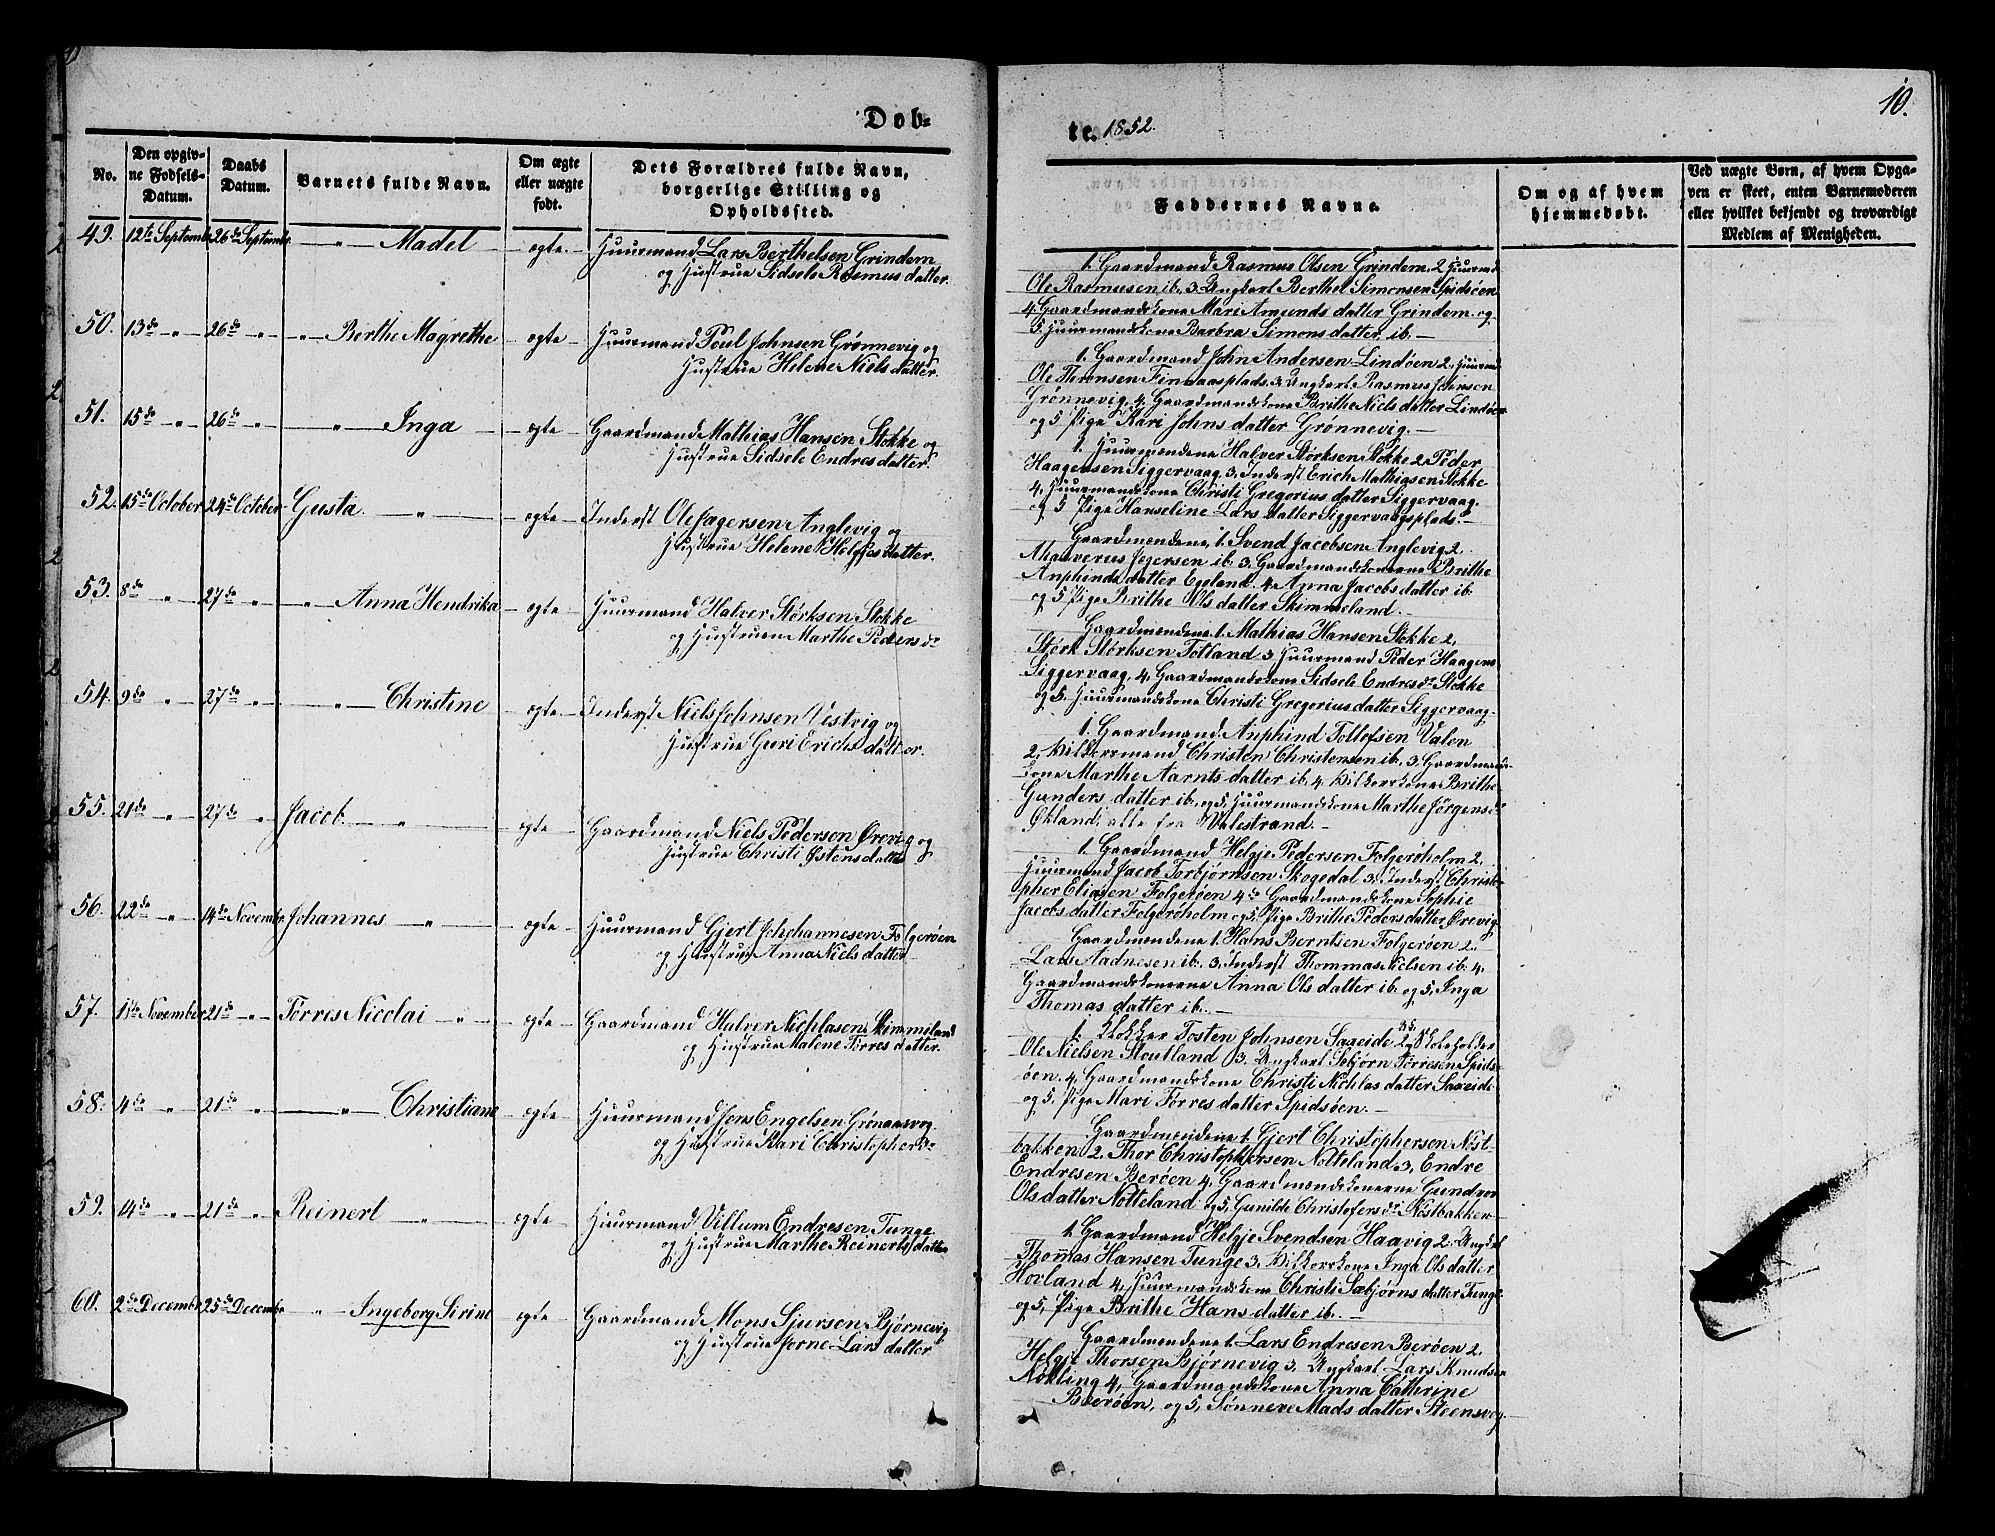 10.
Døb-
te. 1852.
No.
Den opgiv-
ne Fødsels-
Datum.
Daabs
Datum.
Barnets fulde Navn.
Om ægte
eller uægte
født.
Dets Forældres fulde Navn,
borgerlige Stilling og
Opholdssted.
Faddernes Navne.
Om og af hvem
hjemmedøbt.
Ved uægte Børn, af hvem Opga-
ven er skeet, enten Barnemoderen
eller hvilket bekjendt og troværdigt
Medlem af Menigheden.
49. 12te Septembr. 26de Septembr. " Madel ægte Huusmand Lars Berthelsen Grindem
og Hustrue Sidsele Rasmusdatter.
1. Gaardmand Rasmus Olsen Grindem, 2 Huusmd
Ole Rasmusen ib. 3. Ungkarl Berthel Simonsen Spidsøen
4 Gaardmandskone Mari Amunds datter Grindem. og
5 Huusmandskone Barbra Simons datter ib.
50. 13de " 26de " " Berthe Magrethe ægte Huusmand Poul Johnsen Grønnevig og
Hustrue Helene Niels datter.
1. Gaardmand John Andersen Lindøen 2. Huusmd
Ole Thronsen Finnaasplads. 3. Ungkarl Rasmus Johnsen
Grønnevig, 4. Gaardmandskone Brithe Niels datter Lindøen
og 5 Pige Kari Johns datter Grønnevig.
51. 15de " 26de " " Inga ægte Gaardmand Mathias Hansen Stokke og
Hustrue Sidsele Endres datter.
1. Huusmændene Halver Størksen Stokke 2. Peder
Haagensen Siggervaag, 3. Inderst Erich Mathiasen Stokke
4. Huusmandskone Christi Gregorius datter Siggervaag
og 5 Pige Hanseline Lars datter Siggervaagsplads.
52. 15de October 24de October Gusta " ægte Inderst Ole Jagersen Anglevig og
Hustrue Helene Helges datter.
Gaardmændene, 1. Svend Jacobsen Anglevig 2.
Maaverius Jegersen ib. 3. Gaardmandskonerne Brithe
Anphinds datter Egeland. 4. Anna Jacobs datter ib.
og 5 Pige Brithe Ols datter Skimmeland.
53. 8de " 27de " " Anna Hendrika ægte Huusmand Halver Størksen Stokke
og Hustruen Marthe Peders dr
Gaardmændene 1. Mathias Hansen Stokke 2,
Størk Størksen Totland 3 Huusmand Peder Haagens
Siggervaag, 4, Gaardmandskone Sidsele Endresdr Stokke
og 5. Huusmandskone Christi Gregorius datter Siggervaag.
54. 9de " 27de " " Christine ægte Inderst Niels Johnsen Vestvig og
Hustrue Guri Erichs datter.
1. Gaardmand Anphind Tollofsen Valen
2, Vilkorsmand Christen Christensen ib, 3. Gaardmands-
kone Marthe Aarnts datter ib. 4. Vilkorskone Brithe
Gunders datter ib. og 5, Huusmandskone Marthe Jørgensdr
Økland, alle fra Valestrand.
55. 21de " 27de " Jacob " ægte Gaardmand Niels Pedersen Ørevig og
Hustrue Christi Østens datter
1. Gaardmand Helgje Pedersen Folgerøholm 2,
Huusmand Jacob Torbjørnsen Skogedal 3. Inderst Christo-
pher Eliasen Folgerøen 4de Gaardmandskone Sophie
Jacobs datter Folgerøholm og 5. Pige Brithe Peders datter Ørevig
56. 22de " 14de Novembr. Johannes " ægte Huusmand Gjert Johchannesen Folgerøen
og Hustrue Anna Niels datter
Gaardmændene 1. Hans Berntsen Folgerøen 2.
Lars Aadnesen ib. 3, Inderst Thommas Nielsen ib. 4,
Gaardmandskonerne Anna Ols datter ib. og 5, Inga
Thomas datter ib.
57. 1ste November 21de " Tørres Nicolai " ægte Gaardmand Halver Nichlasen Skimmeland
og Hustrue Malene Tørres datter.
1, Klokker Tosten Johnsen Saxeide 2, Skoleholder
Ole Nielsen Stoutland 3. Ungkarl Sebjørn Tørresen Spids-
øen. 4, Gaardmandskone Christi Nichlas datter Saxeide
og 5. Pige Mari Tørres datter Spidsøen.
58. 4de " 21de " " Christiane ægte Huusmand Jens Engelsen Grønaasvog.
og Hustrue Kari Christopher dr
Gaardmændene 1. Gjert Christophersen Nøst-
bakken 2. Thor Christophersen Notteland 3, Endre
Endresen Berøen 4, Gaardmandskonerne Gundror
Ols datter Notteland og 5, Gunilde Christofersdr Nøstbakken
59. 14de " 21de " Reinert " ægte Huusmand Villum Endresen Tunge
og Hustrue Marthe Reinerts datter
1. Gaardmand Helgje Svendsen Haavig 2. Ungkl
Thomas Hansen Tunge 3, Vilkorskone Inga Ols datter
Hovland 4, Huusmandskone Christi Sæbjørns datter Tunge
og 5, Pige Brithe Hans datter ib.
60. 2de Decembr. 25de Decembr. " Ingeborg Sirine ægte Gaardmand Mons Sjursen Bjørnevig
og Hustrue Jorne Lars datter
Gaardmændene 1. Lars Endresen Berøen 2,
Helgje Thorsen Bjørnevig 3. Ungkarl Lars Knudsen
Nøkling 4, Gaardmandskone Anna Cathrine
Berøen, og 5, Sønneve Mads datter Steensvog.